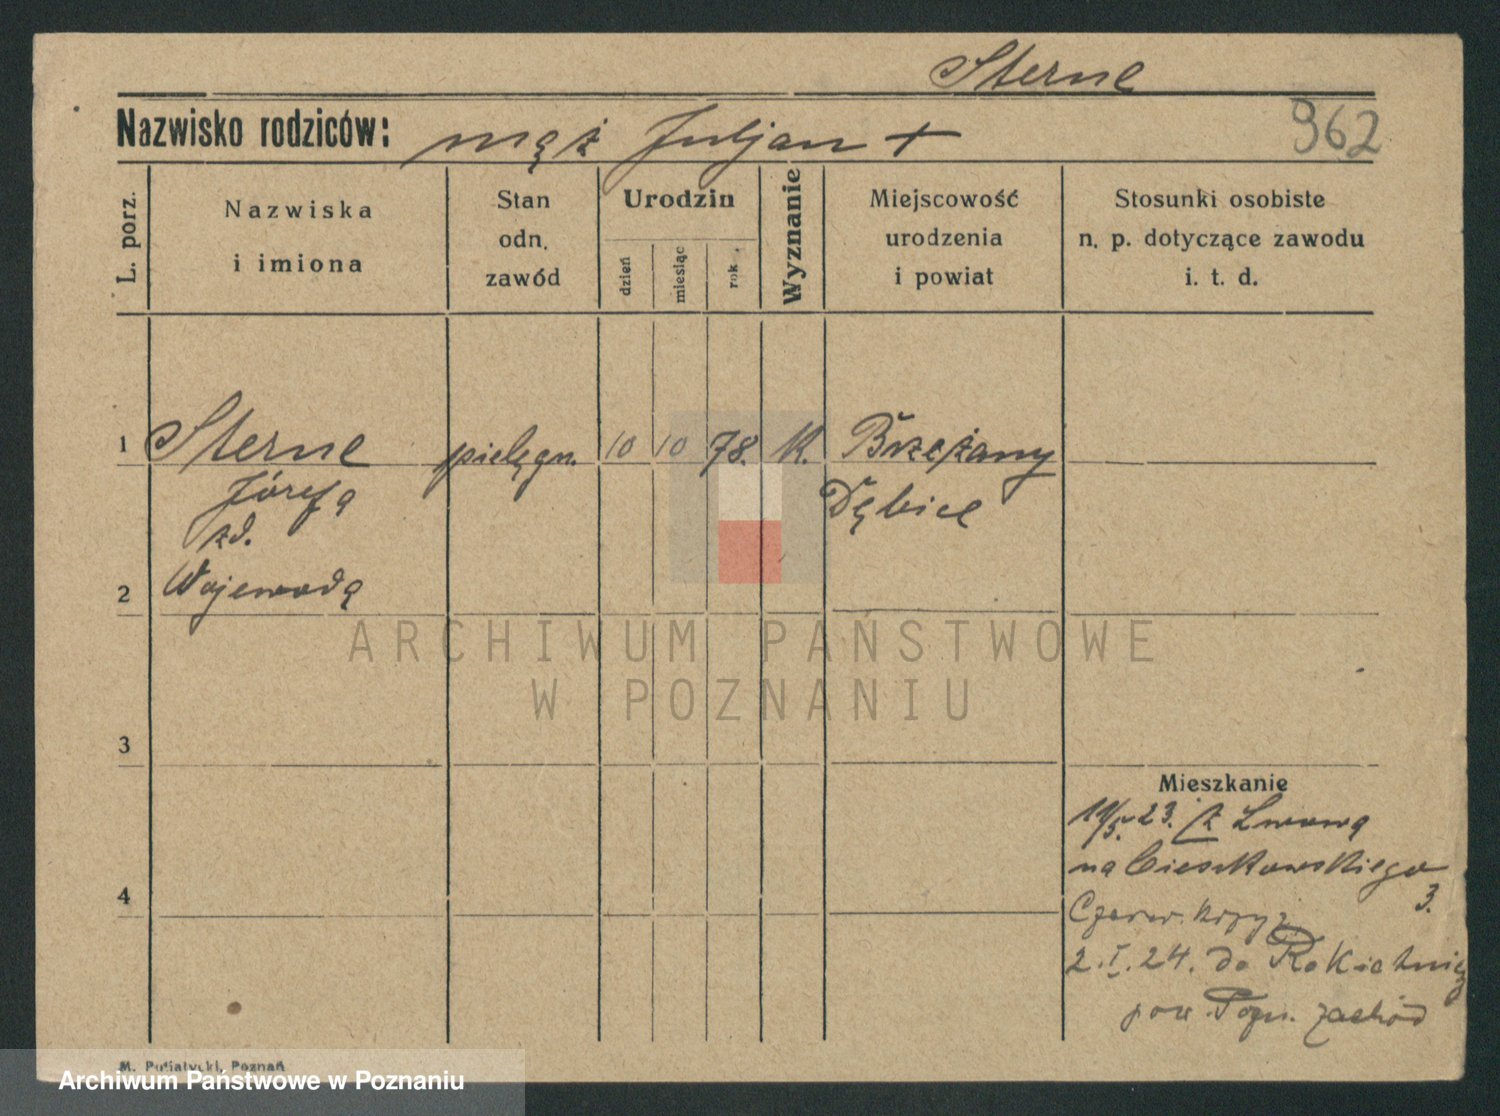 Sterne
Nazwisko rodziców: mąż Juljan +
962
L. porz.
Nazwiska
i imiona
Stan
odn.
zawód
Urodzin
dzień
miesiąc
rok
Wyznanie
Miejscowość
urodzenia
i powiat
Stosunki osobiste
n. p. dotyczące zawodu
i. t. d.
1 Sterne pielęgn. 10 10 78. K. Brzeżany
Józefa Dębice
zd.
2 Wojewoda
ARCHIWUM PAŃSTWOWE
W POZNANIU
3
Mieszkanie
11/5. 23. z Lwowa
na Cieszkowskiego
4
3.
Czerw. krzyż
2.I.24. do Rokietnicy
pow. Pozn. zachód
M. Putiatycki, Poznań
Archiwum Państwowe w Poznaniu